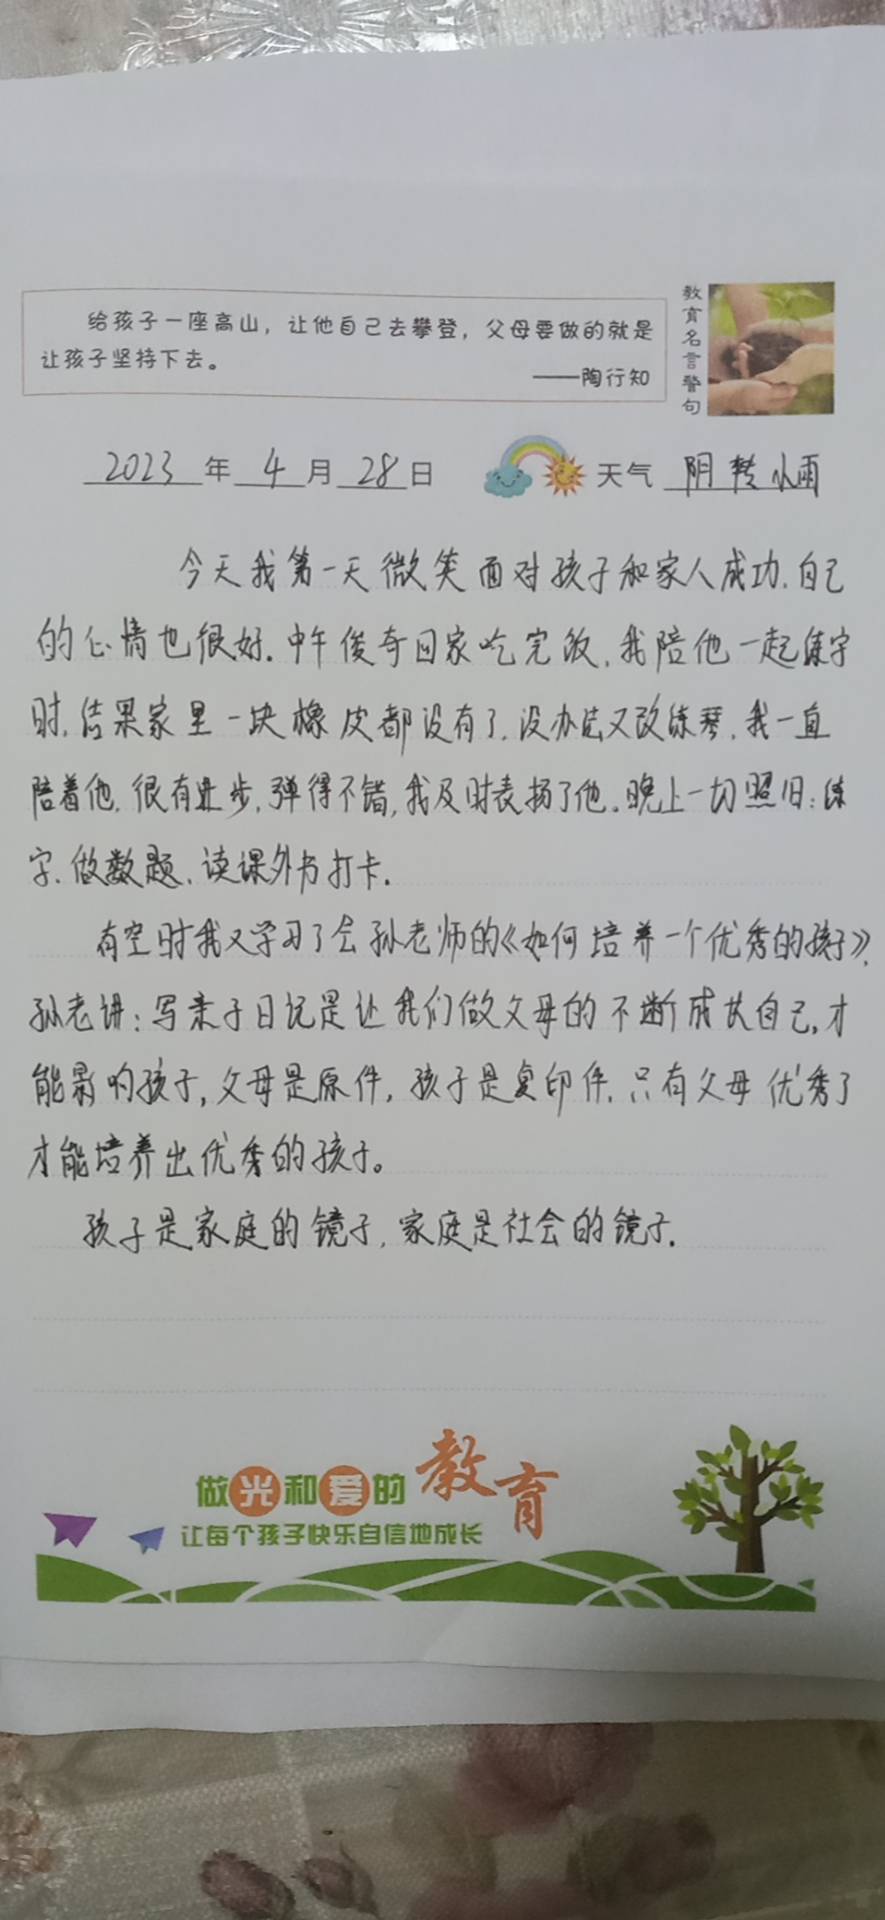 给孩子一座高山，让他自己去攀登，父母要做的就是
让孩子坚持下去。
——陶行知
教育名言警句
2023年4月28日 天气 阴转小雨
今天我第一天微笑面对孩子和家人成功.自己
的心情也很好.中午俊奇回家吃完饭,我陪他一起练字
时,结果家里一块橡皮都没有了,没办法又改练琴,我一直
陪着他,很有进步,弹得不错,我及时表扬了他。晚上一切照旧:练
字.做数题.读课外书打卡.
有空时我又学习了会孙老师的《如何培养一个优秀的孩子》,
孙老讲:写亲子日记是让我们做父母的不断成长自己,才
能影响孩子,父母是原件,孩子是复印件.只有父母优秀了
才能培养出优秀的孩子。
孩子是家庭的镜子,家庭是社会的镜子.
做光和爱的教育
让每个孩子快乐自信地成长